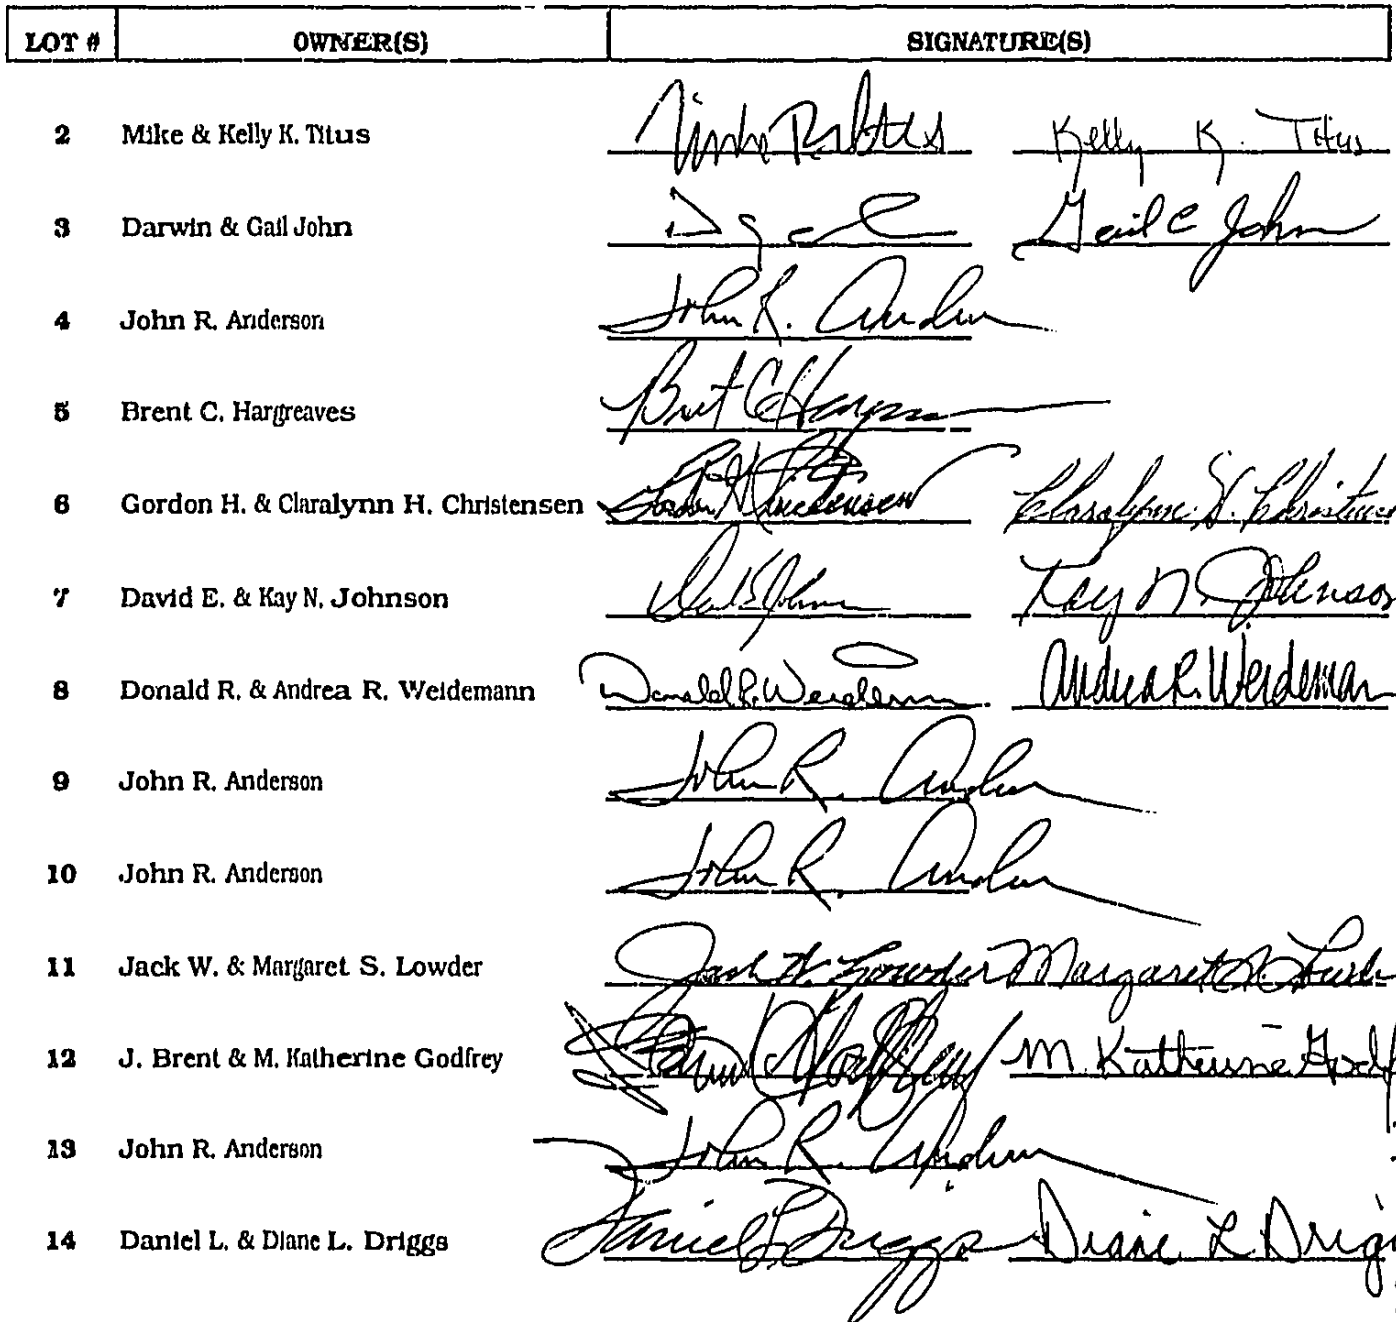 LOT # OWNER(S) SIGNATURE(S)
2 Mike & Kelly K. Titus Kelly K. Titus
3 Darwin & Gail John Gail C John
4 John R. Anderson John R. Anderson
5 Brent C. Hargreaves Brent C
6 Gordon H. & Claralynn H. Christensen Gordon H Christensen Claralynn H. Christensen
7 David E. & Kay N. Johnson David E Johnson Kay N. Johnson
8 Donald R. & Andrea R. Weidemann Donald R. Weidemann Andrea R. Weideman
9 John R. Anderson John R. Anderson
10 John R. Anderson John R. Anderson
11 Jack W. & Margaret S. Lowder Jack W. Lowder Margaret S. Lowder
12 J. Brent & M. Katherine Godfrey M. Katherine Godf
13 John R. Anderson John R. Anderson
14 Daniel L. & Diane L. Driggs Daniel L. Driggs Diane L Drigg